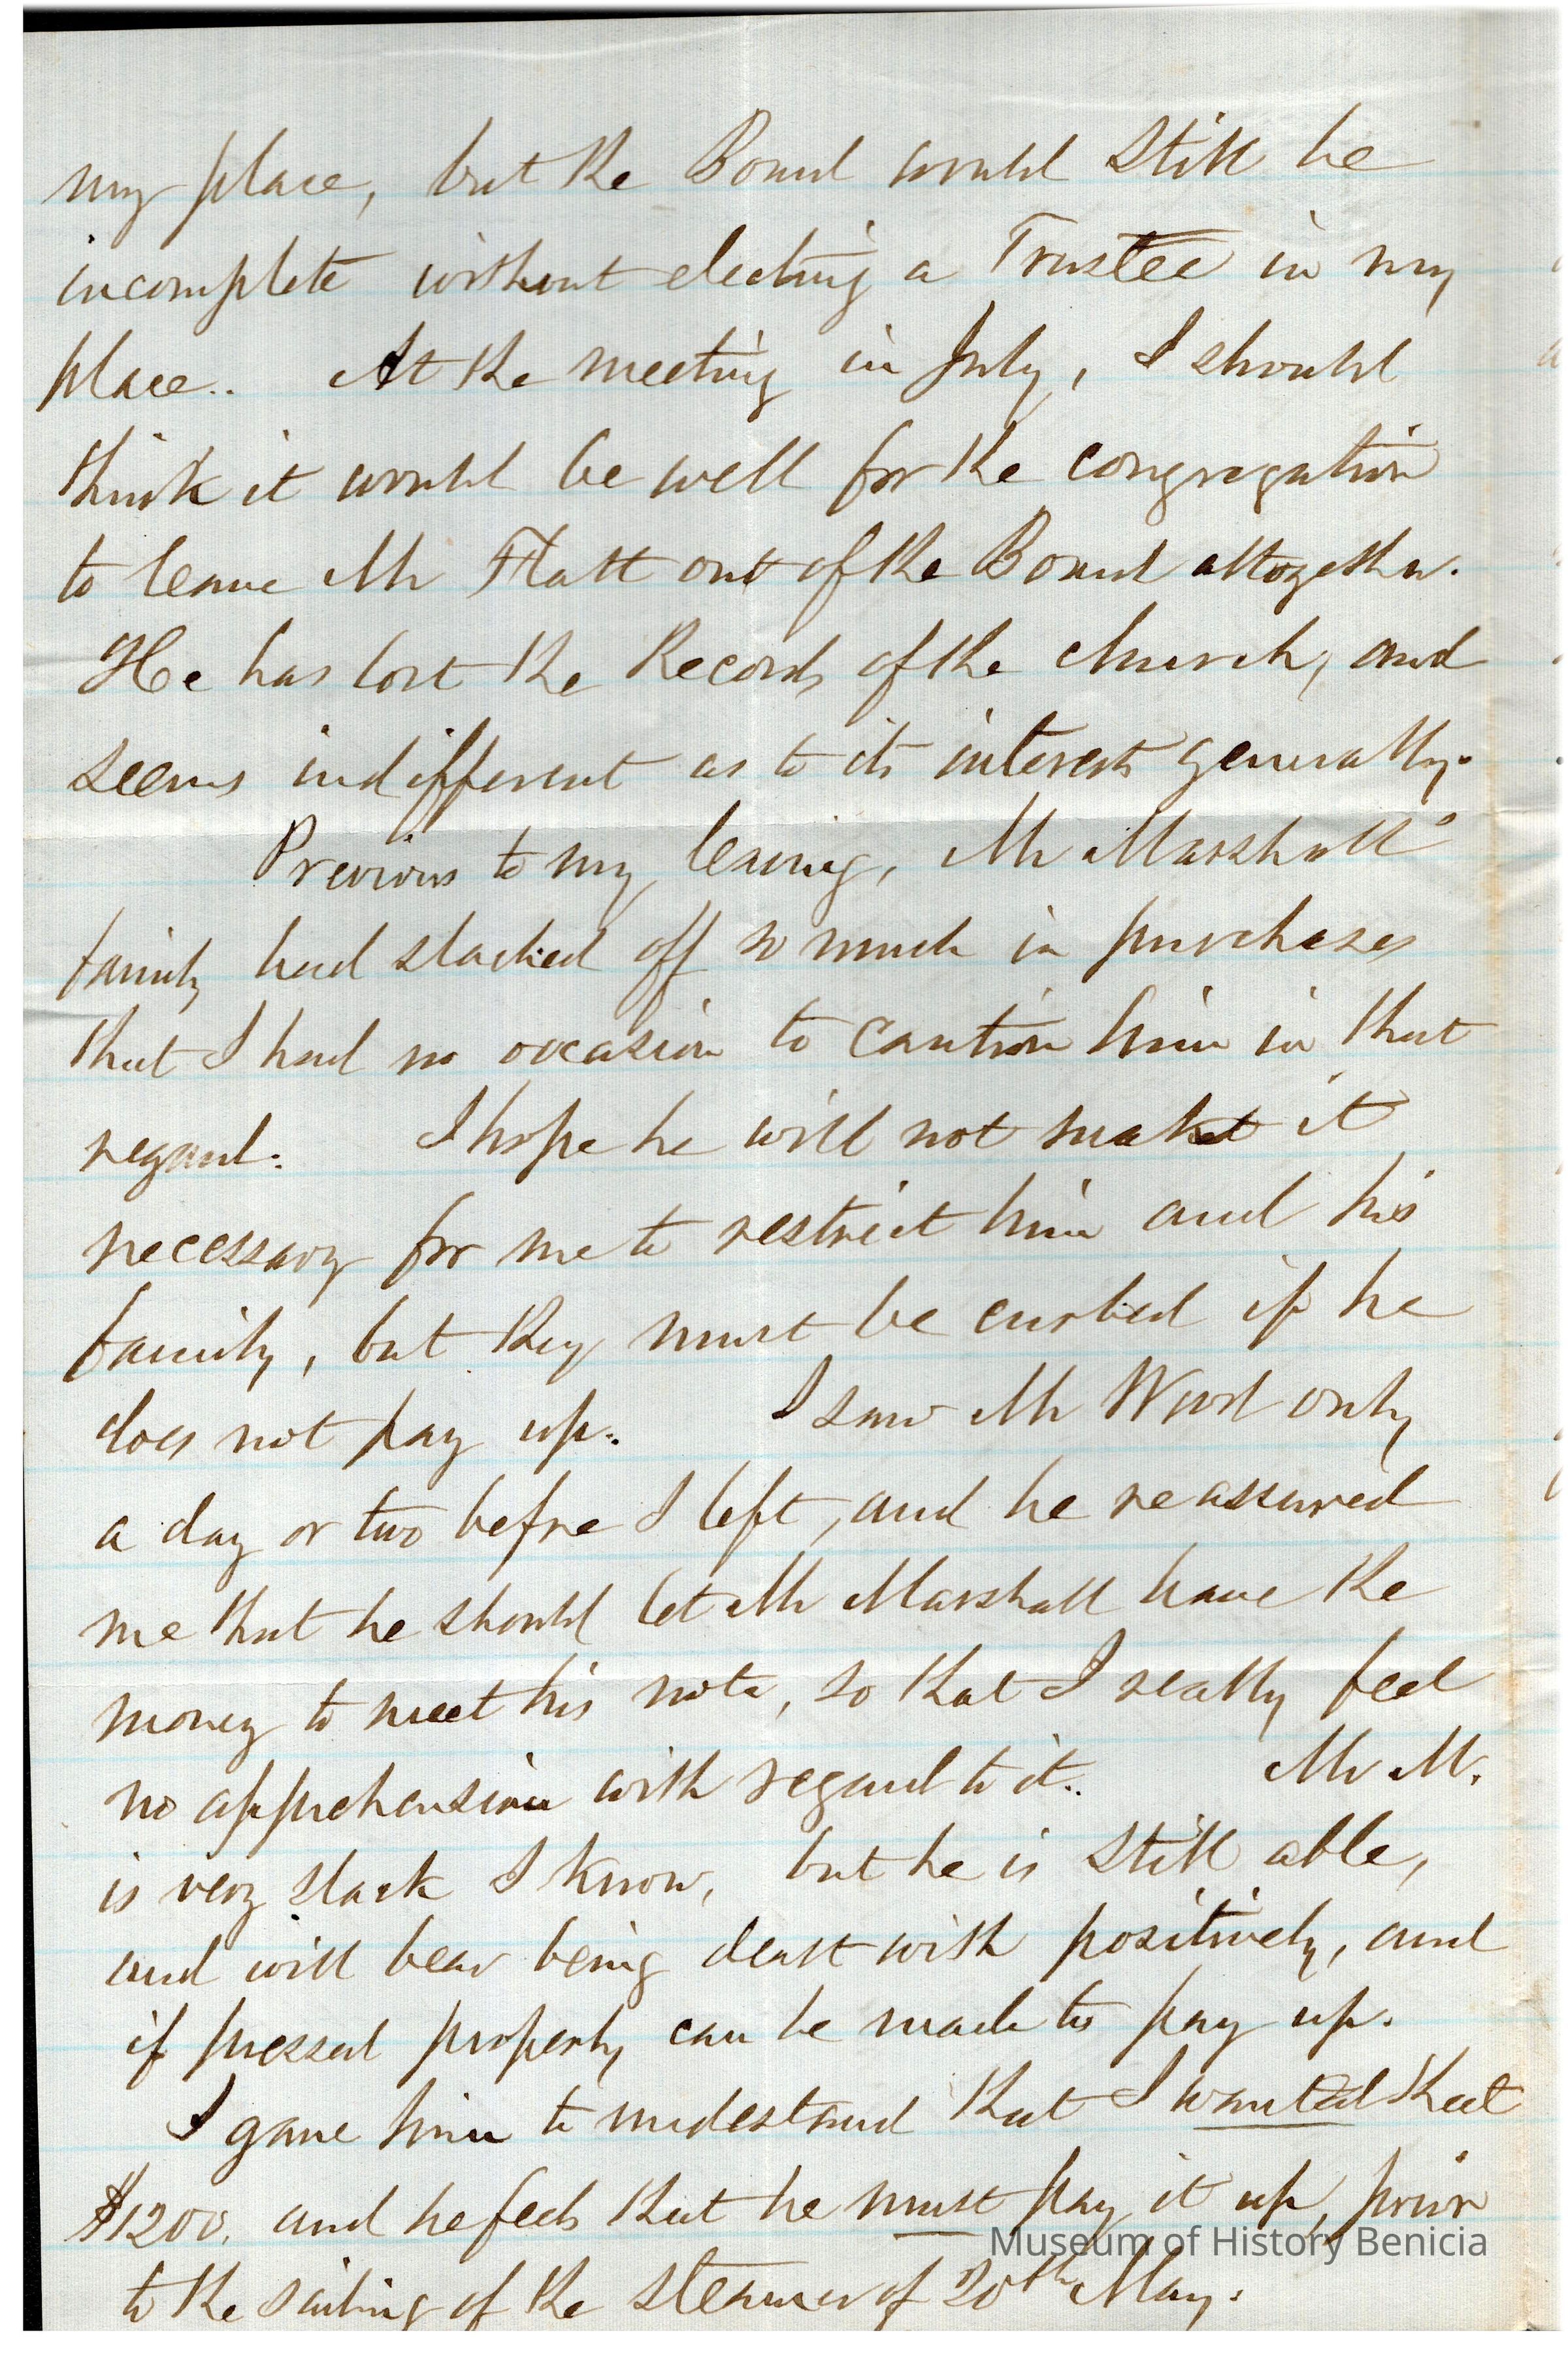 my place, but the Board would still be
incomplete without electing a Trustee in my
place. At the meeting in July, I should
think it would be well for the congregation
to leave Mr Flatt out of the Board altogether.
He has lost the Records of the church, and
seems indifferent as to its interests generally.
Previous to my leaving, Mr Marshall's
family had slacked off so much in purchases
that I had no occasion to caution him in that
regard. I hope he will not make it
necessary for me to restrict him and his
family, but they must be curbed if he
does not pay up. I saw Mr Wood only
a day or two before I left, and he reassured
me that he should let Mr Marshall have the
money to meet his note, so that I really feel
no apprehension with regard to it. Mr M.
is very slack I know, but he is still able,
and will bear being dealt with positively, and
if pressed properly can be made to pay up.
I gave him to understand that I wanted that
$1200. and he feels that he must pay it up, prior
to the sailing of the steamer of 20th May.
Museum of History Benicia